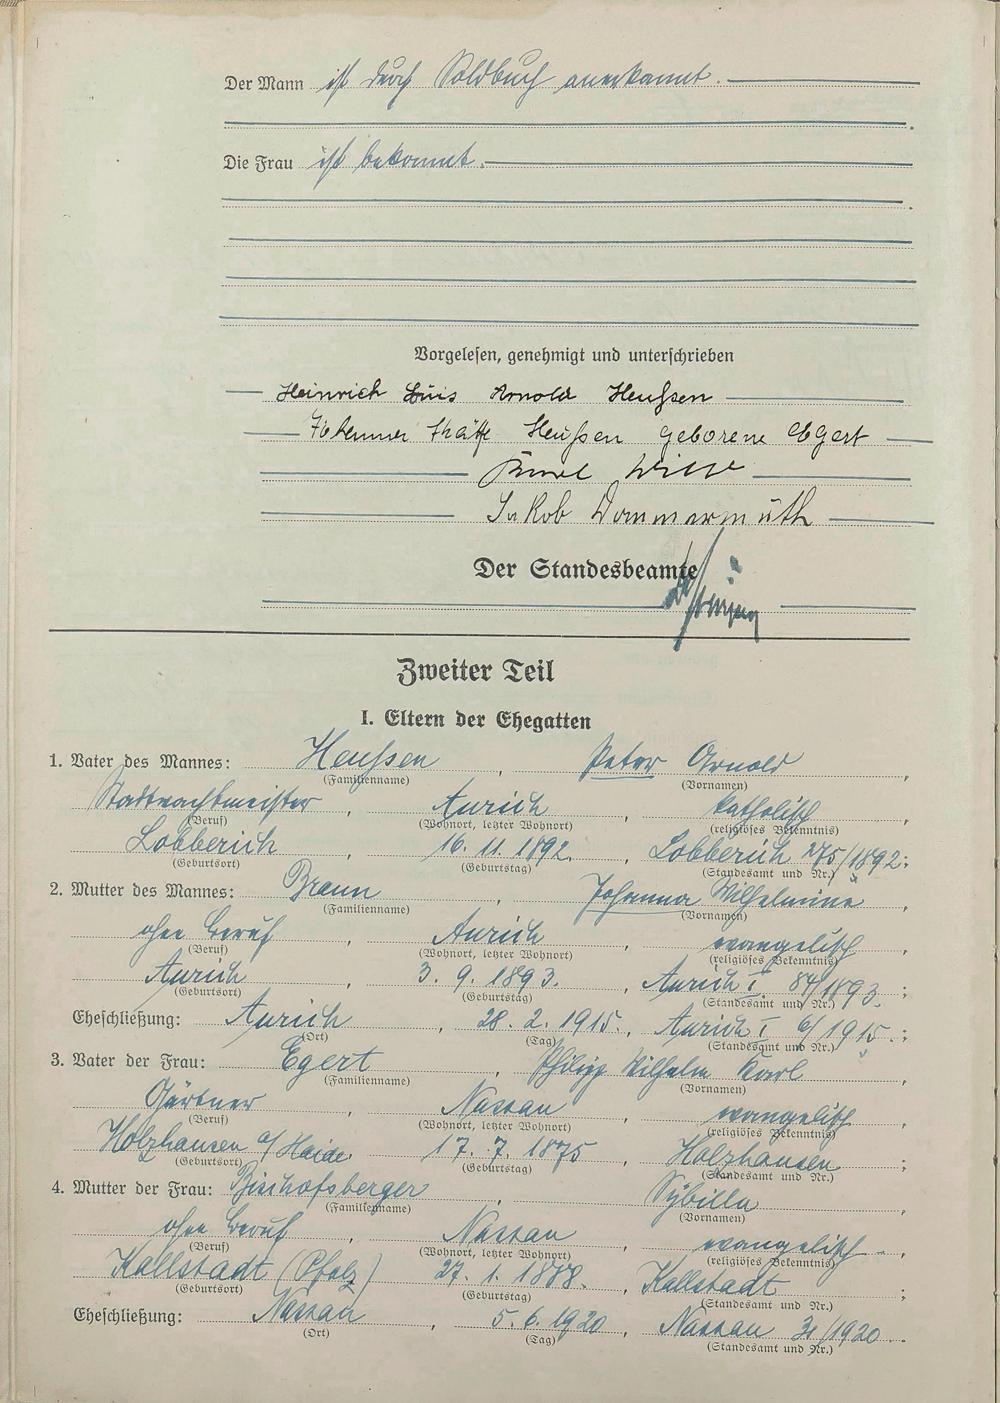 Der Mann ist durch Soldbuch anerkannt.
Die Frau ist bekannt.
Vorgelesen, genehmigt und unterschrieben
Heinrich Luis Arnold Heußen
Heußen geborene Egert
Jakob Dommermuth
Der Standesbeamte
Zweiter Teil
I. Eltern der Ehegatten
1. Vater des Mannes: Heußen, Peter Arnold,
(Familienname) (Vornamen)
Stadtwachtmeister, Aurich, katholisch
(Beruf) (Wohnort, letzter Wohnort) (religiöses Bekenntnis)
Lobberich, 16. 11. 1892., Lobberich 275/1892;
(Geburtsort) (Geburtstag) (Standesamt und Nr.)
2. Mutter des Mannes: Braun, Johanna Wilhelmine,
(Familienname) (Vornamen)
ohne Beruf, Aurich, evangelisch
(Beruf) (Wohnort, letzter Wohnort) (religiöses Bekenntnis)
Aurich, 3. 9. 1893., Aurich I 84/1893.;
(Geburtsort) (Geburtstag) (Standesamt und Nr.)
Eheschließung: Aurich, 28. 2. 1915., Aurich I 6/1915.;
(Ort) (Tag) (Standesamt und Nr.)
3. Vater der Frau: Egert, Philipp Wilhelm Karl,
(Familienname) (Vornamen)
Gärtner, Nassau, evangelisch
(Beruf) (Wohnort, letzter Wohnort) (religiöses Bekenntnis)
Holzhausen a/Haide, 17. 7. 1875, Holzhausen;
(Geburtsort) (Geburtstag) (Standesamt und Nr.)
4. Mutter der Frau: Bischofsberger, Sybilla,
(Familienname) (Vornamen)
ohne Beruf, Nassau, evangelisch,
(Beruf) (Wohnort, letzter Wohnort) (religiöses Bekenntnis)
Kallstadt (Pfalz) 27. 1. 1888., Kallstadt;
(Geburtsort) (Geburtstag) (Standesamt und Nr.)
Eheschließung: Nassau, 5. 6. 1920, Nassau /1920.
(Ort) (Tag) (Standesamt und Nr.)